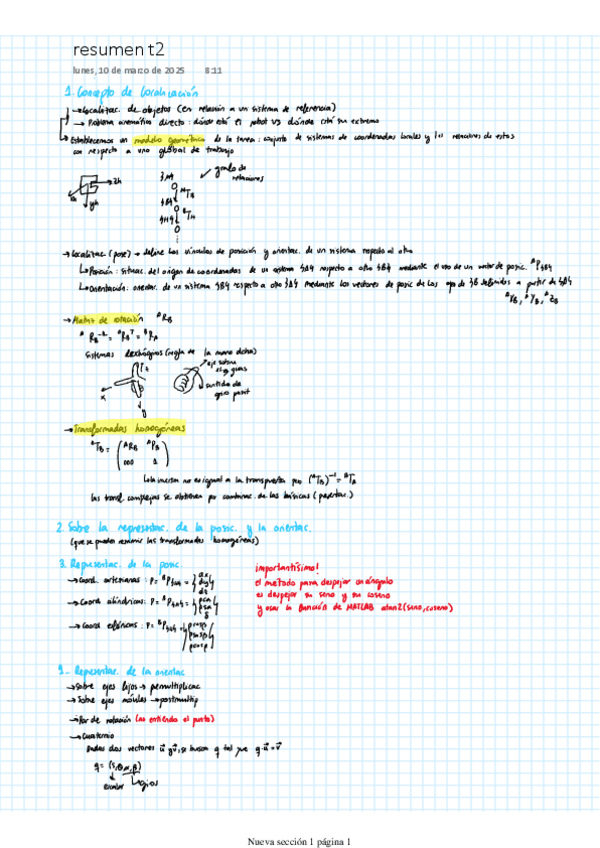 resumen t2
lunes, 10 de marzo de 2025 8:11
1. Concepto de localización
→ Localizac. de objetos (en relación a un sistema de referencia)
→ Problema cinemático directo: dónde está el robot vs dónde está su extremo
→ Establecemos un modelo geométrico de la tarea: conjunto de sistemas de coordenadas locales y las relaciones de estos
con respecto a uno global de trabajo
grafo de
relaciones
→ Localizac. (pose) → define los vínculos de posición y orientac. de un sistema respecto al otro
↳ Posición: situac. del origen de coordenadas de un sistema {B} respecto a otro {A} mediante el uso de un vector de posic.
↳ Orientación: orientac. de un sistema {B} respecto a otro {A} mediante los vectores de posic de los ejes de {B} definidos a partir de {A}
→ Matriz de rotación ᴬR_B
ᴬR_B⁻¹ = ᴬR_Bᵀ = ᴮR_A
Sistemas dextrógiros (regla de la mano dcha)
eje sobre
el q giras
sentido de
giro posit
z
x
y
→ Transformadas homogéneas
ᴬT_B = (ᴬR_B ᴬP_B
000 1)
↳ la inversa no es igual a la transpuesta pero (ᴬT_B)⁻¹ = ᴮT_A
las transf. complejas se obtienen por combinac. de las básicas
2. Sobre la representac. de la posic. y la orientac.
(que se pueden resumir las transformadas homogéneas)
3. Representac. de la posic.
importantísimo!
→ Coord. cartesianas: P =
el método para despejar un ángulo
es despejar su seno y su coseno
→ Coord cilíndricas: P =
y usar la función de MATLAB atan2(seno,coseno)
→ Coord esféricas: P =
Representac. de la orientac
→ Sobre ejes fijos → premultiplicac
→ Sobre ejes móviles → postmultip
→ Par de rotación (no entiendo el punto)
→ Cuaternio
Dados dos vectores u⃗ y v⃗, se busca q tal que q·u⃗ = v⃗
escalar
Nueva sección 1 página 1